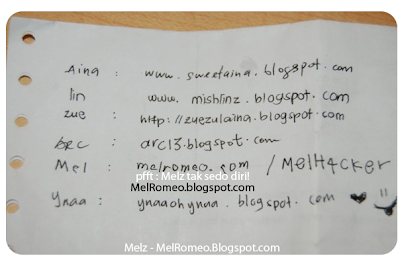 Aina : www.sweetaina.blogspot.com
lin www.mishlinz.blogspot.com
zue : http://zuezulaina.blogspot.com
: arc13.blogspot.com
Mel : melromeo.com / MelH4cker
pfft : Melz tak sedo diri!
MelRomeo.blogspot.com
Ynaa : ynaaohynaa.blogspot.com
Melz - MelRomeo.Blogspot.com